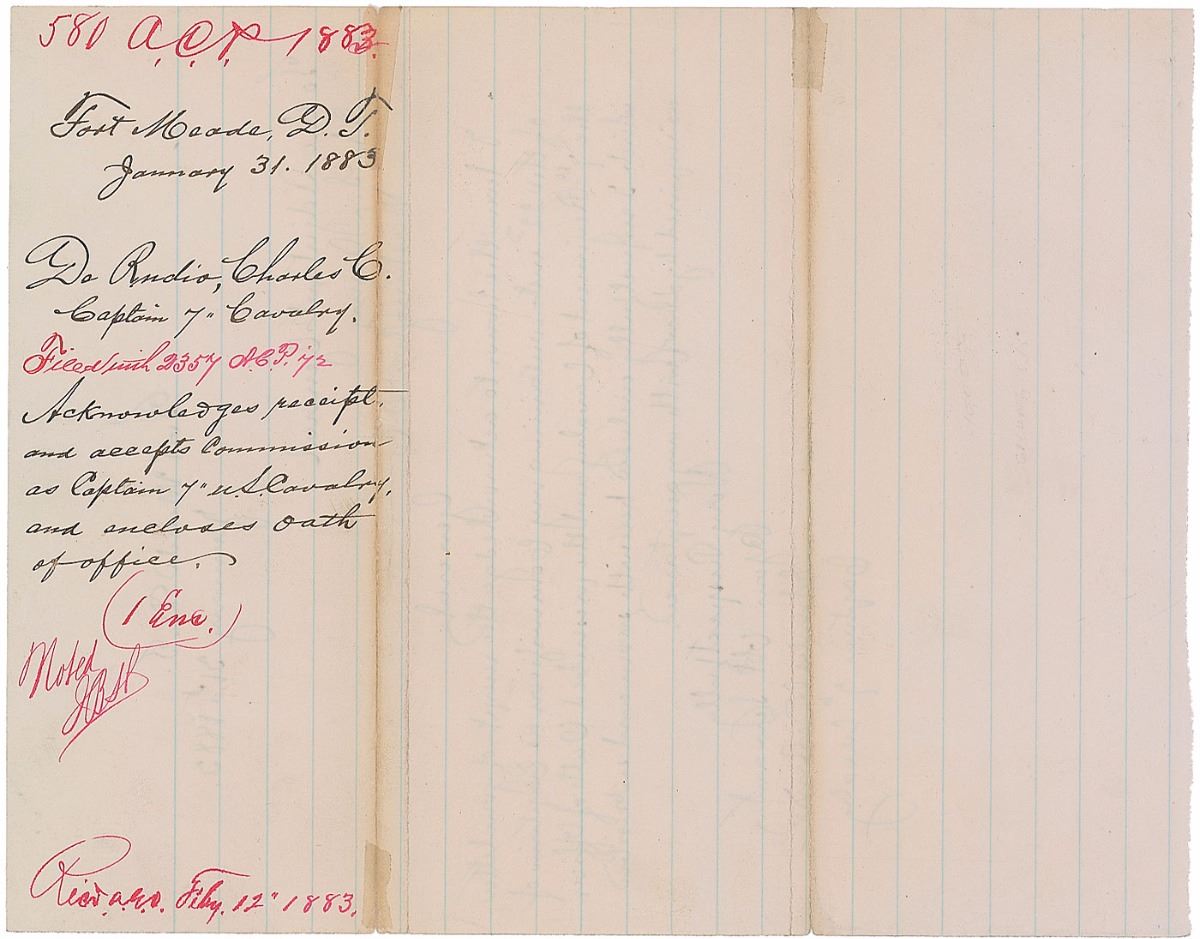 580 A.C.P. 1883.
Fort Meade, D. T.
January 31. 1883
De Rudio, Charles C.
Captain 7" Cavalry.
Filed with 2357 A.C.P. '72
Acknowledges receipt
and accepts Commission
as Captain 7" U.S. Cavalry,
and encloses oath
of office.
(1 Enc.)
Noted
Rec'd A.G.O. Feby. 12" 1883.